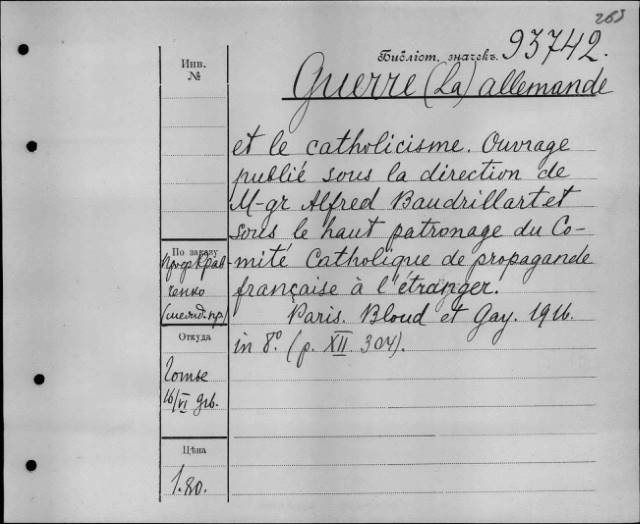 263
Библіот. значекъ. 93742.
Guerre (La) allemande
et le catholicisme. Ouvrage
publié sous la direction de
M-gr Alfred Baudrillart et
sous le haut patronage du Co-
mité Catholique de propagande
française à l'étranger.
Paris. Bloud et Gay. 1916.
in 8°. (p. XII. 304).
Инв.
№
По заказу
Проф Крав
ченко
Откуда
16/VI
Цѣна
1.80.